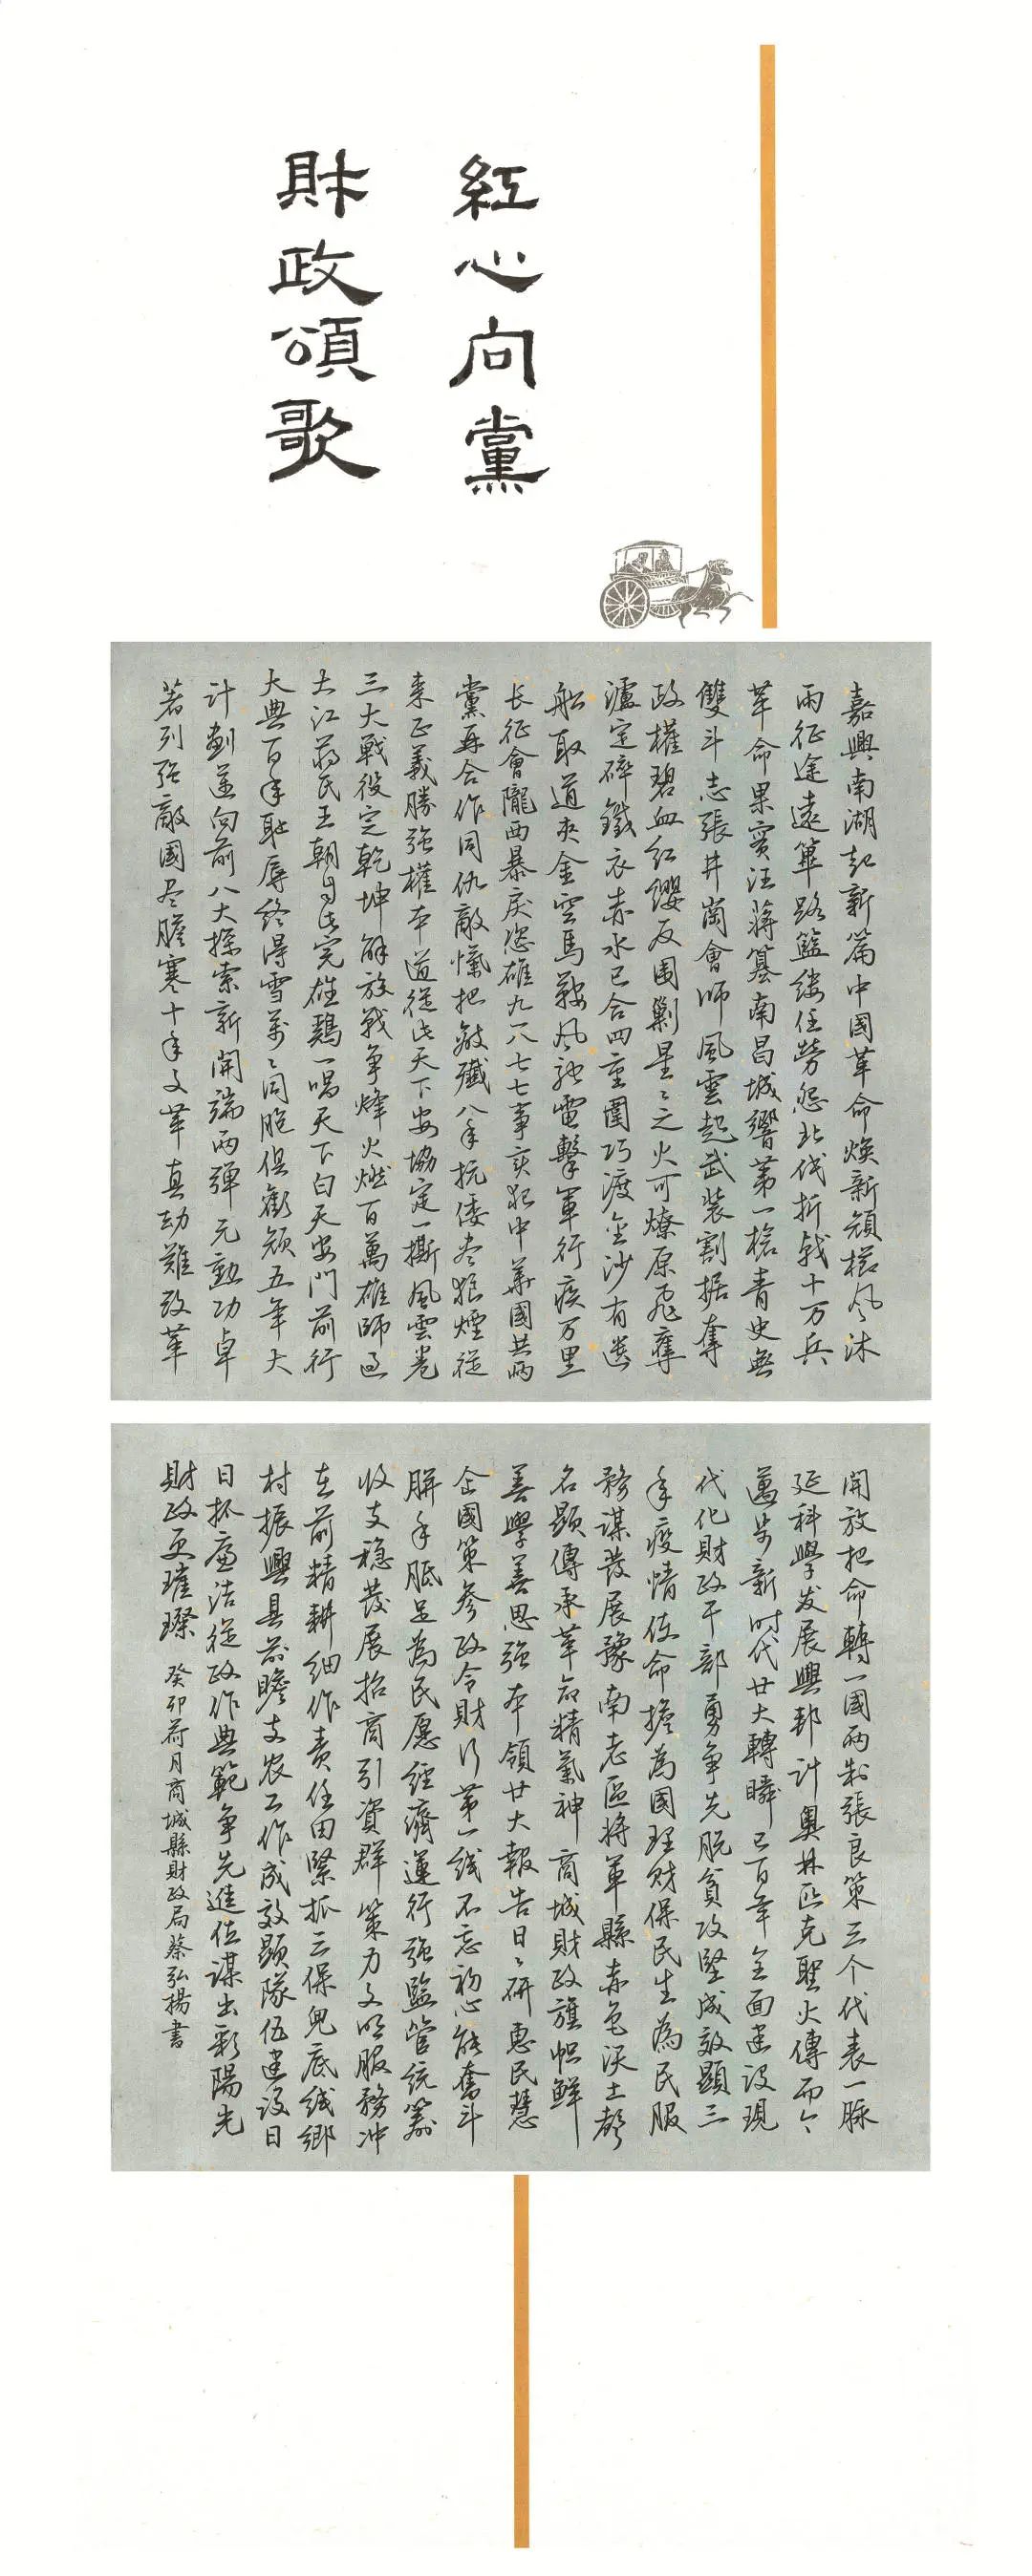 紅心向黨
財政頌歌
嘉興南湖起新篇中國革命煥新顏櫛风沐
雨征途遠篳路籃缕任勞怨北伐折戟十万兵
革命果實汪蔣篡南昌城響第一槍青史無
雙斗志張井崗會师風雲起武装割据奪
政權碧血红缨反围剿星之火可燎原飛奪
瀘定碎鐵衣赤水已合四重圍巧渡金沙有
船取道夾金空馬鞍风驰電擊軍行疾万里
长征會隴西暴戾恣雄九一八七七事变犯中華國共两
黨再合作同仇敵愾把敵殲八年抗倭尽狼煙從
来正義勝强權本道從此天下安協定一撕風雲卷
三大戰役定乾坤解放戰争烽火燃百萬雄師过
大江蔣氏王朝自此完雄鷄一唱天下白天安門前行
大典百年耻辱终得雪萬〻同胞俱歡颜五年大
計劃道向前八大探索新開端两彈元勳功卓
著列强敵國尽膽寒十年文革真劫難改革
開放把命轉一國两制張良策三个代表一脉
延科學发展興邦計奥林匹克聖火傳而今
邁步新时代廿大轉瞬已百年全面建设現
代化財政干部勇争先脱貧攻堅成效顯三
年疫情使命擔為國理财保民生為民服
務谋發展豫南老區將軍縣赤色沃土都
名顯傳承革命精氣神商城財政旗幟鮮
善學善思强本領廿大報告日〻研惠民慧
企國策參政令財行第一线不忘初心能奮斗
胼手胝足為民愿經濟運行强監管統籌
收支稳發展招商引資群策力文明服務冲
在前精耕细作责任田緊抓三保兜底线鄉
村振興具前瞻支农工作成效顯隊伍建设日
日抓廉洁從政作典範争先進位謀出彩陽光
財政更璀璨 癸卯荷月商城縣財政局蔡弘揚書